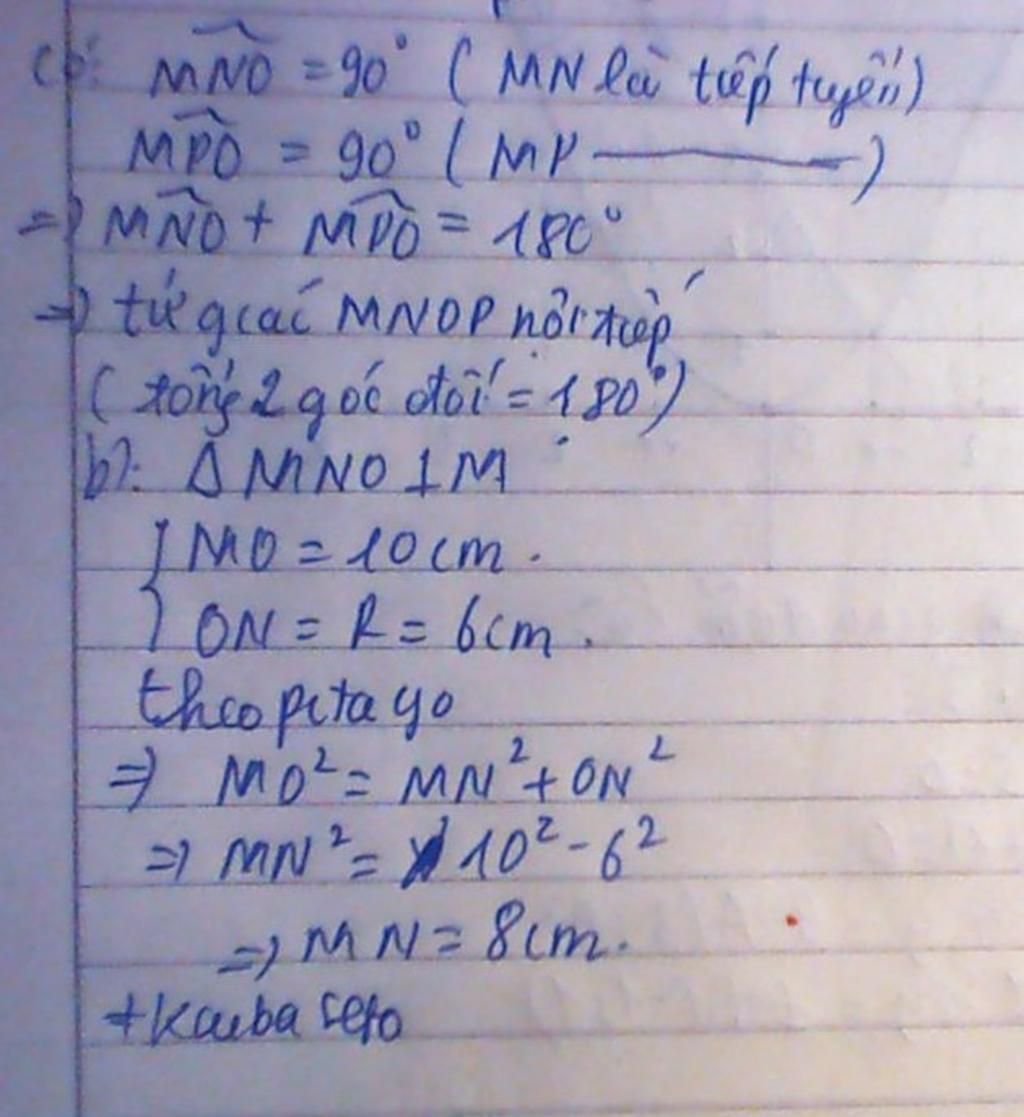 Có: MNO = 90° (MN là tiếp tuyến)
MPO = 90° (MP ———)
=> MNO + MPO = 180°
=> tứ giác MNOP nội tiếp
(tổng 2 góc đối = 180°)
b): Δ MNO ⊥ M
{ MO = 10 cm.
ON = R = 6cm.
theo pitago
=> MO² = MN² + ON²
=> MN² = 10² - 6²
=> MN = 8cm.
+ Kaiba seto